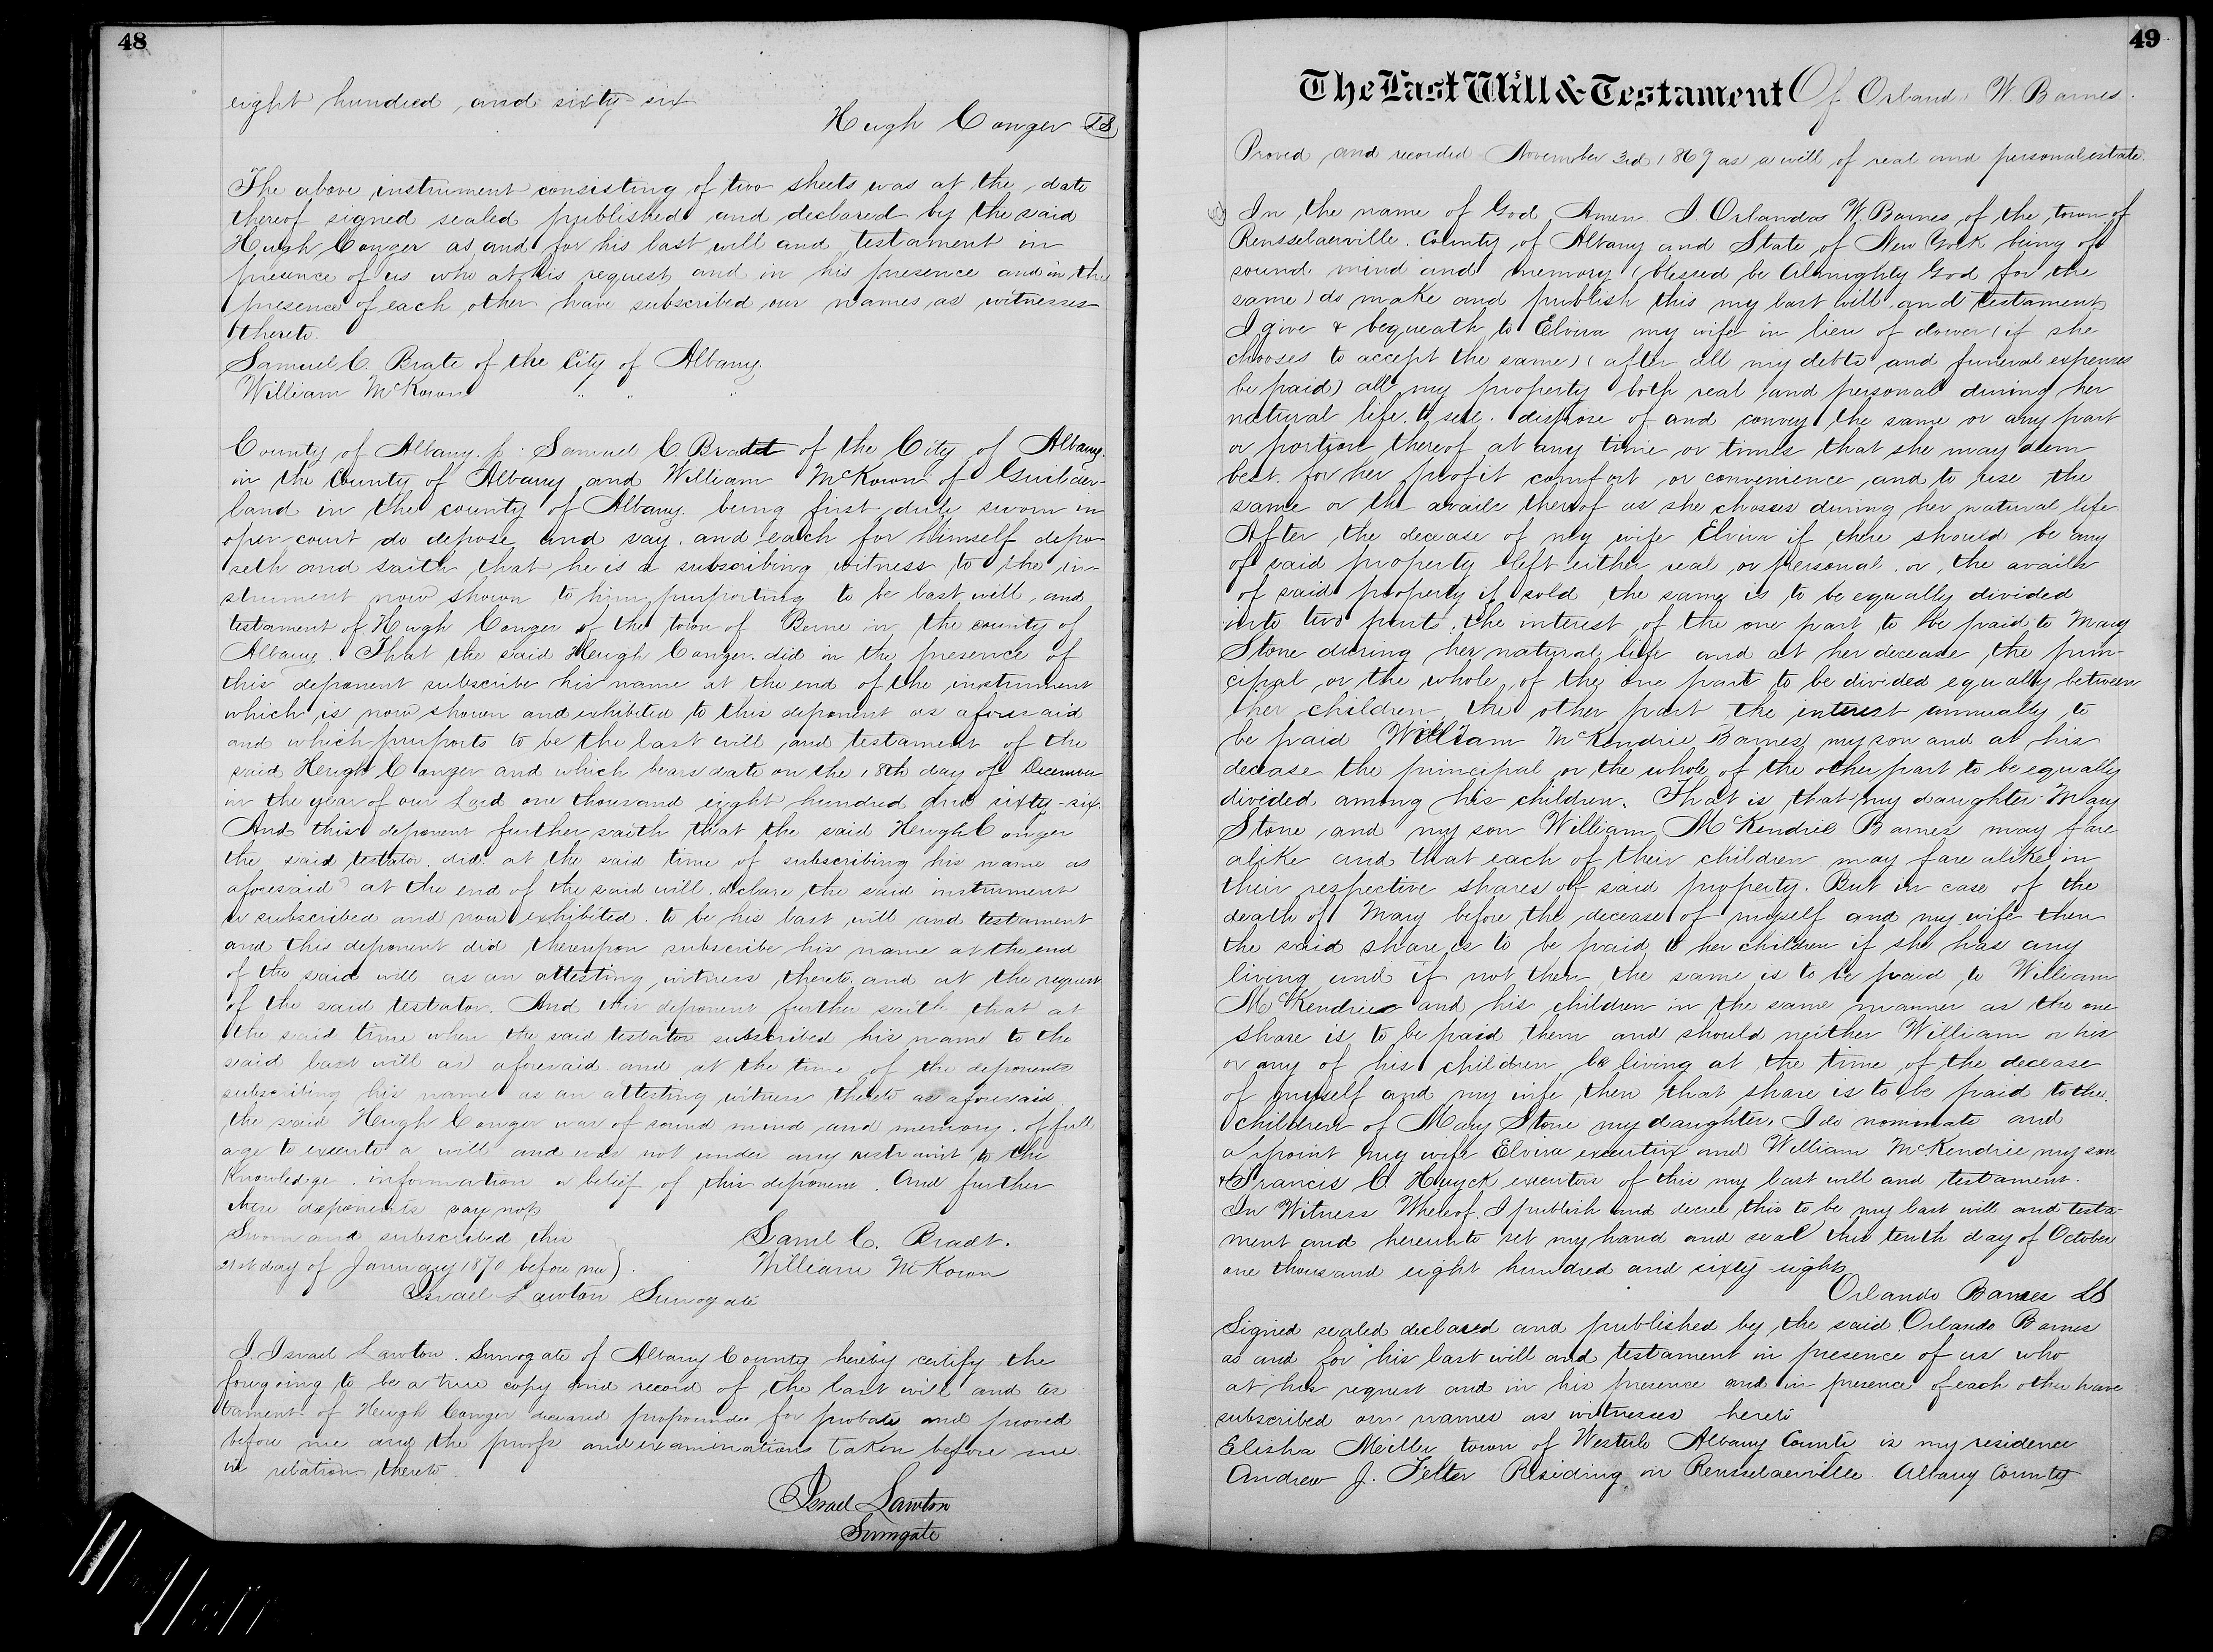 48
eight hundred and sixty-six
Hugh Conger LS
The above instrument consisting of two sheets was at the date
thereof signed sealed published and declared by the said
Hugh Conger as and for his last will and testament in
presence of us who at his request and in his presence and in the
presence of each other have subscribed our names as witnesses
thereto.
Samuel C. Brate of the City of Albany.
William McKown " " "
County of Albany ss. Samuel C. Bradt of the City of Albany.
in the County of Albany and William McKown of Guilder-
land in the county of Albany. being first duly sworn in
open court do depose and say. and each for himself depo-
seth and saith that he is a subscribing witness to the in-
strument now shown to him purporting to be last will and
testament of Hugh Conger of the town of Berne in the county of
Albany. That the said Hugh Conger. did in the presence of
this deponent subscribe his name at the end of the instrument
which is now shown and exhibited to this deponent as aforesaid
and which purports to be the last will and testament of the
said Hugh Conger and which bears date on the 18th day of December
in the year of our Lord one thousand eight hundred and sixty-six.
And this deponent further saith that the said Hugh Conger
the said testator. did. at the said time of subscribing his name as
aforesaid at the end of the said will. declare the said instrument
so subscribed and now exhibited. to be his last will and testament
and this deponent did thereupon subscribe his name at the end
of the said will as an attesting witness thereto and at the request
of the said testator. And this deponent further saith that at
the said time when the said testator subscribed his name to the
said last will as aforesaid and at the time of the deponents
subscribing his name as an attesting witness thereto as aforesaid
the said Hugh Conger was of sound mind and memory. of full
age to execute a will and was not under any restraint to the
knowledge. information or belief of this deponent. And further
these deponents say not
Sworn and subscribed this
21st day of January 1870 before me
Saml C. Bradt.
William McKown
Israel Lawton Surrogate
I. Israel Lawton. Surrogate of Albany County hereby certify the
foregoing to be a true copy and record of the last will and tes
tament of Hugh Conger deceased propounded for probate and proved
before me and the proofs and examinations taken before me
in relation thereto.
Israel Lawton
Surrogate
49
The Last Will & Testament Of Orlando W. Barnes.
Proved and recorded November 3rd 1869 as a will of real and personal estate.
In the name of God Amen. I. Orlando W. Barnes of the town of
Rensselaerville. County of Albany and State of New York being of
sound mind and memory (blessed be Almighty God for the
same) do make and publish this my last will and testament
I give & bequeath to Elvira my wife in lieu of dower (if she
chooses to accept the same) (after all my debts and funeral expenses
be paid) all my property both real and personal during her
natural life. to sell. dispose of and convey the same or any part
or portion thereof at any time or times that she may deem
best for her profit comfort or convenience and to use the
same or the avails thereof as she chooses during her natural life
After the decease of my wife Elvira if there should be any
of said property left either real or personal. or the avails
of said property if sold the same is to be equally divided
into two parts. the interest of the one part to be paid to Mary
Stone during her natural life and at her decease the prin-
cipal or the whole of the one part to be divided equally between
her children the other part the interest annually to
be paid William McKendrie Barnes my son and at his
decease the principal or the whole of the other part to be equally
divided among his children. That is that my daughter Mary
Stone and my son William McKendrie Barnes may fare
alike and that each of their children may fare alike in
their respective shares of said property. But in case of the
death of Mary before the decease of myself and my wife then
the said share is to be paid to her children if she has any
living and if not then the same is to be paid to William
McKendrie and his children in the same manner as the one
share is to be paid them and should neither William or his
or any of his children be living at the time of the decease
of myself and my wife then that share is to be paid to the
children of Mary Stone my daughter. I do nominate and
appoint my wife Elvira executrix and William McKendrie my son
& Francis C Huyck executors of this my last will and testament.
In Witness Whereof. I publish and decree this to be my last will and testa-
ment and hereunto set my hand and seal this tenth day of October
one thousand eight hundred and sixty eight
Orlando Barnes LS
Signed sealed declared and published by the said Orlando Barnes
as and for his last will and testament in presence of us who
at his request and in his presence and in presence of each other have
subscribed our names as witnesses hereto
Elisha Miller town of Westerlo Albany County is my residence
Andrew J. Felter Residing in Rensselaerville Albany County